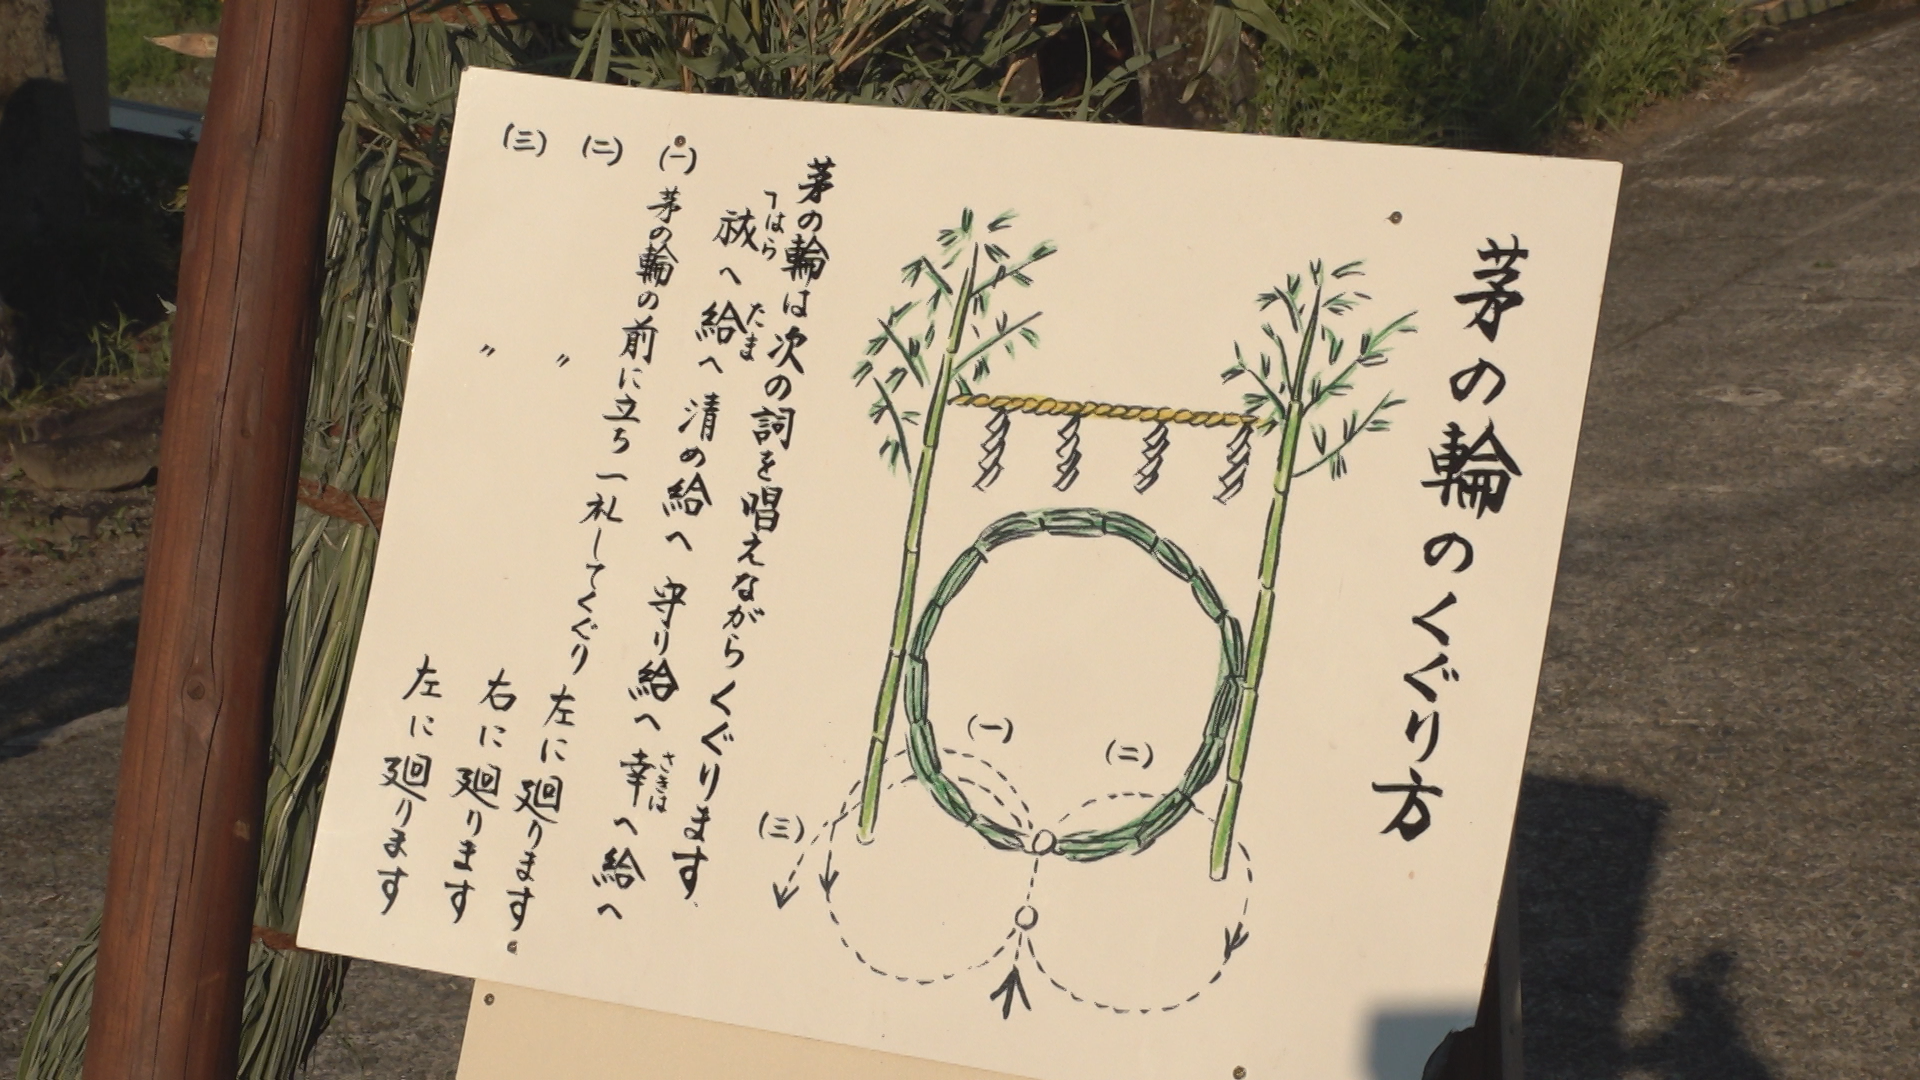 茅の輪のくぐり方
(一)
(二)
(三)
茅の輪は次の詞を唱えながらくぐります
「はら たま さきは
祓へ給へ 清め給へ 守り給へ 幸へ給へ
(一) 茅の輪の前に立ち一礼してくぐり 左に廻ります
(二) 〃 右に廻ります
(三) 〃 左に廻ります